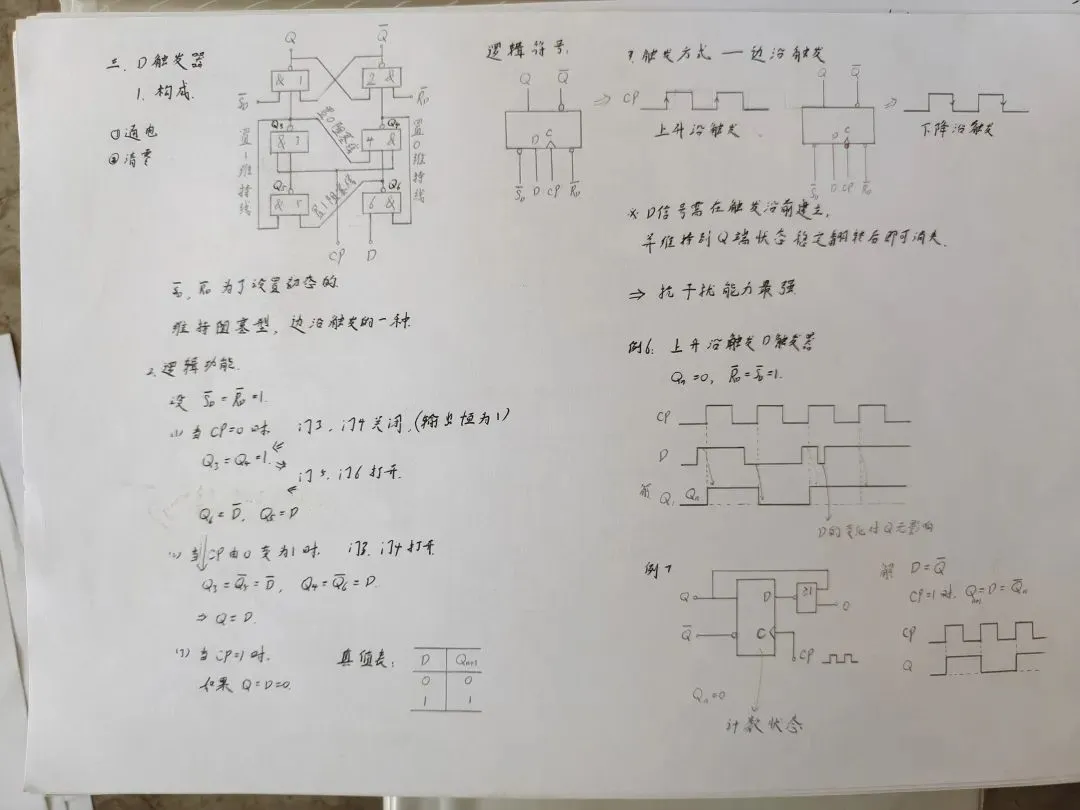 三、D触发器
1、构成.
①通电
②清零
Q Q̄
& 1 2 &
S̄D R̄D
Q3 Q4
& 3 4 &
置0阻塞线
置1维持线
置0维持线
Q5 Q6
& 5 6 &
置1阻塞线
CP D
S̄D, R̄D为了设置初态的
维持阻塞型, 边沿触发的一种.
2、逻辑功能.
设 S̄D=R̄D=1.
(1) 当CP=0时. 门3、门4关闭.(输出恒为1)
Q3=Q4=1.
⇒ 门5、门6打开.
Q6=D̄, Q5=D
(2) 当CP由0变为1时. 门3、门4打开.
Q3=Q̄5=D̄, Q4=Q̄6=D.
⇒ Q=D.
(3) 当CP=1时.
如果Q=D=0.
真值表:
D Qn+1
0 0
1 1
逻辑符号:
Q Q̄
D C
S̄D D CP R̄D
3.触发方式 — 边沿触发
⇒ CP
上升沿触发
Q Q̄
D C
S̄D D CP R̄D
⇒
下降沿触发
※ D信号需在触发沿前建立,
并维持到Q端状态稳定翻转后即可消失.
⇒ 抗干扰能力最强
例6: 上升沿触发D触发器
Qn=0, R̄D=S̄D=1.
CP
D
解 Q Qn
D的变化对Q无影响
例7
Q D ≥1 0
Q̄ C
CP
Qn=0
计数状态
解 D=Q̄
CP=1时. Qn+1=D=Q̄n
CP
Q